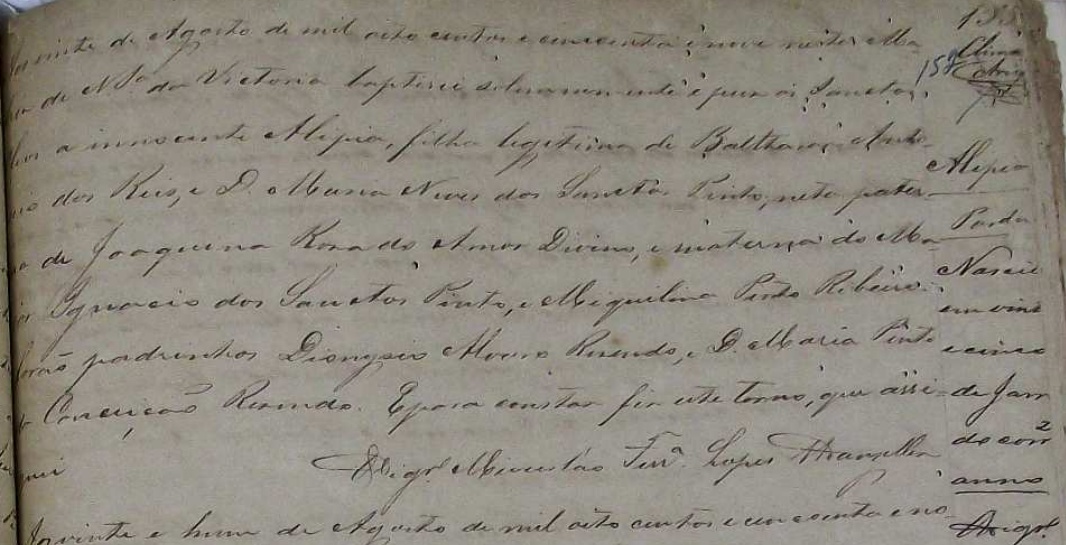 vinte de Agosto de mil oito centos e cincoenta e nove nesta Ma
de N Sa da Victoria baptisei solemnemente e puz os Sanctos
a innocente Alepia, filha legitima de Balthasar Anto
dos Reis, e D. Maria Neves dos Sanctos Pinto, neta pater-
de Joaquina Rosa do Amor Divino, e materna do Ma
Ignacio dos Sanctos Pinto, e Miquilina Pinto Ribeiro:
padrinhos Dionysio Rezendo, e D. Maria Pinto
Conceição Rezendo. E para constar fiz este termo, que assi-
gnei
Vigrº Lopes
vinte e hum de Agosto de mil oito centos e cincoenta e no
158
Alepia
Parda
Nasceu
em vint
e cinco
de Jan
do corr
anno
Vigrº